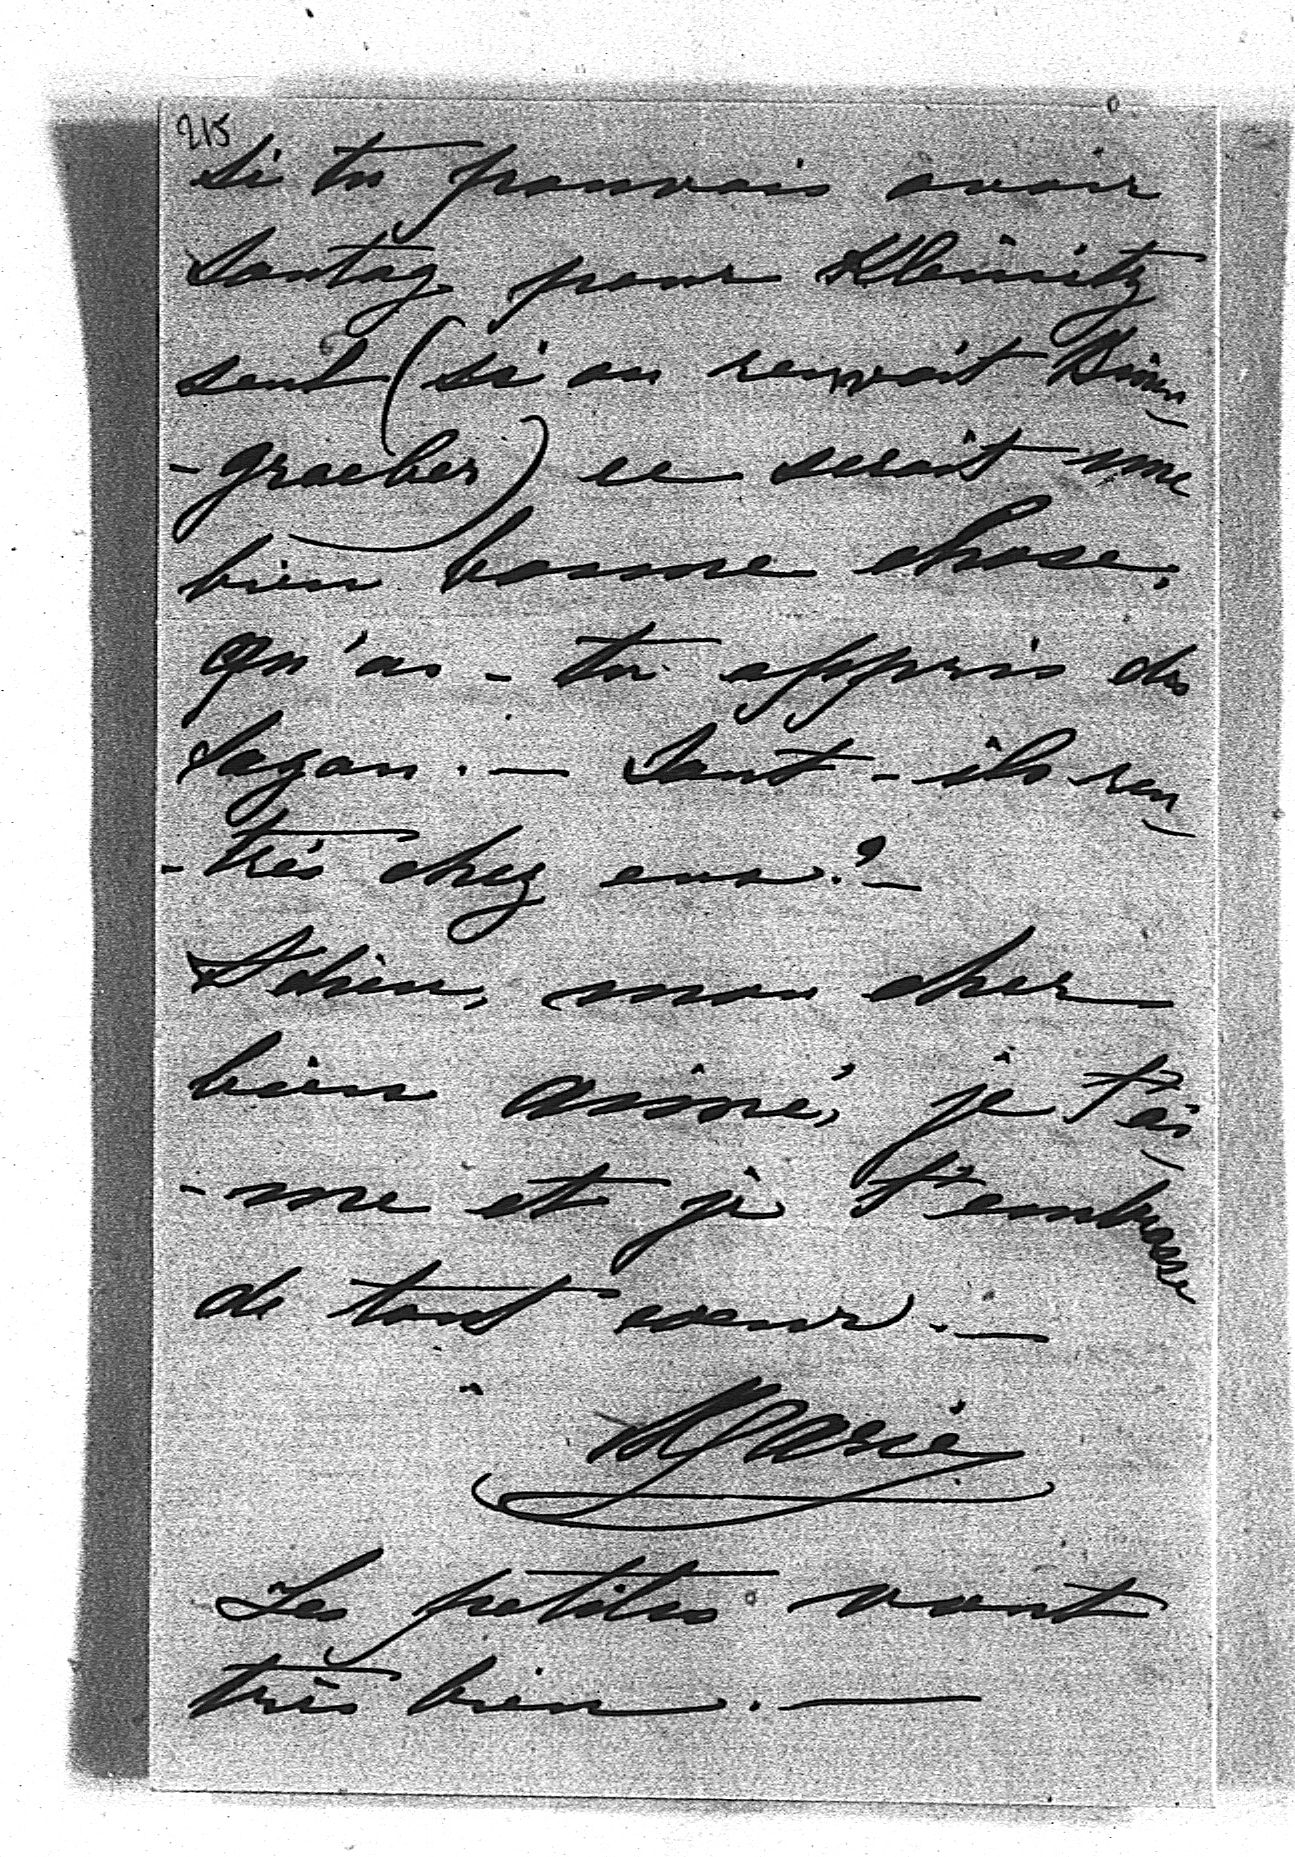 215
Si tu pouvais avoir
Sontag pour Kleinitz
seul (si on renvoit Bien-
-graeber) ce serait une
bien bonne chose.
Qu'as-tu appris des
Sagan. — Sont-ils ren-
-trés chez eux? —
Adieu, mon cher
bien aimé, je t'ai-
-me et je t'embrasse
de tout cœur. —
Marie
Les petites vont
très bien. —